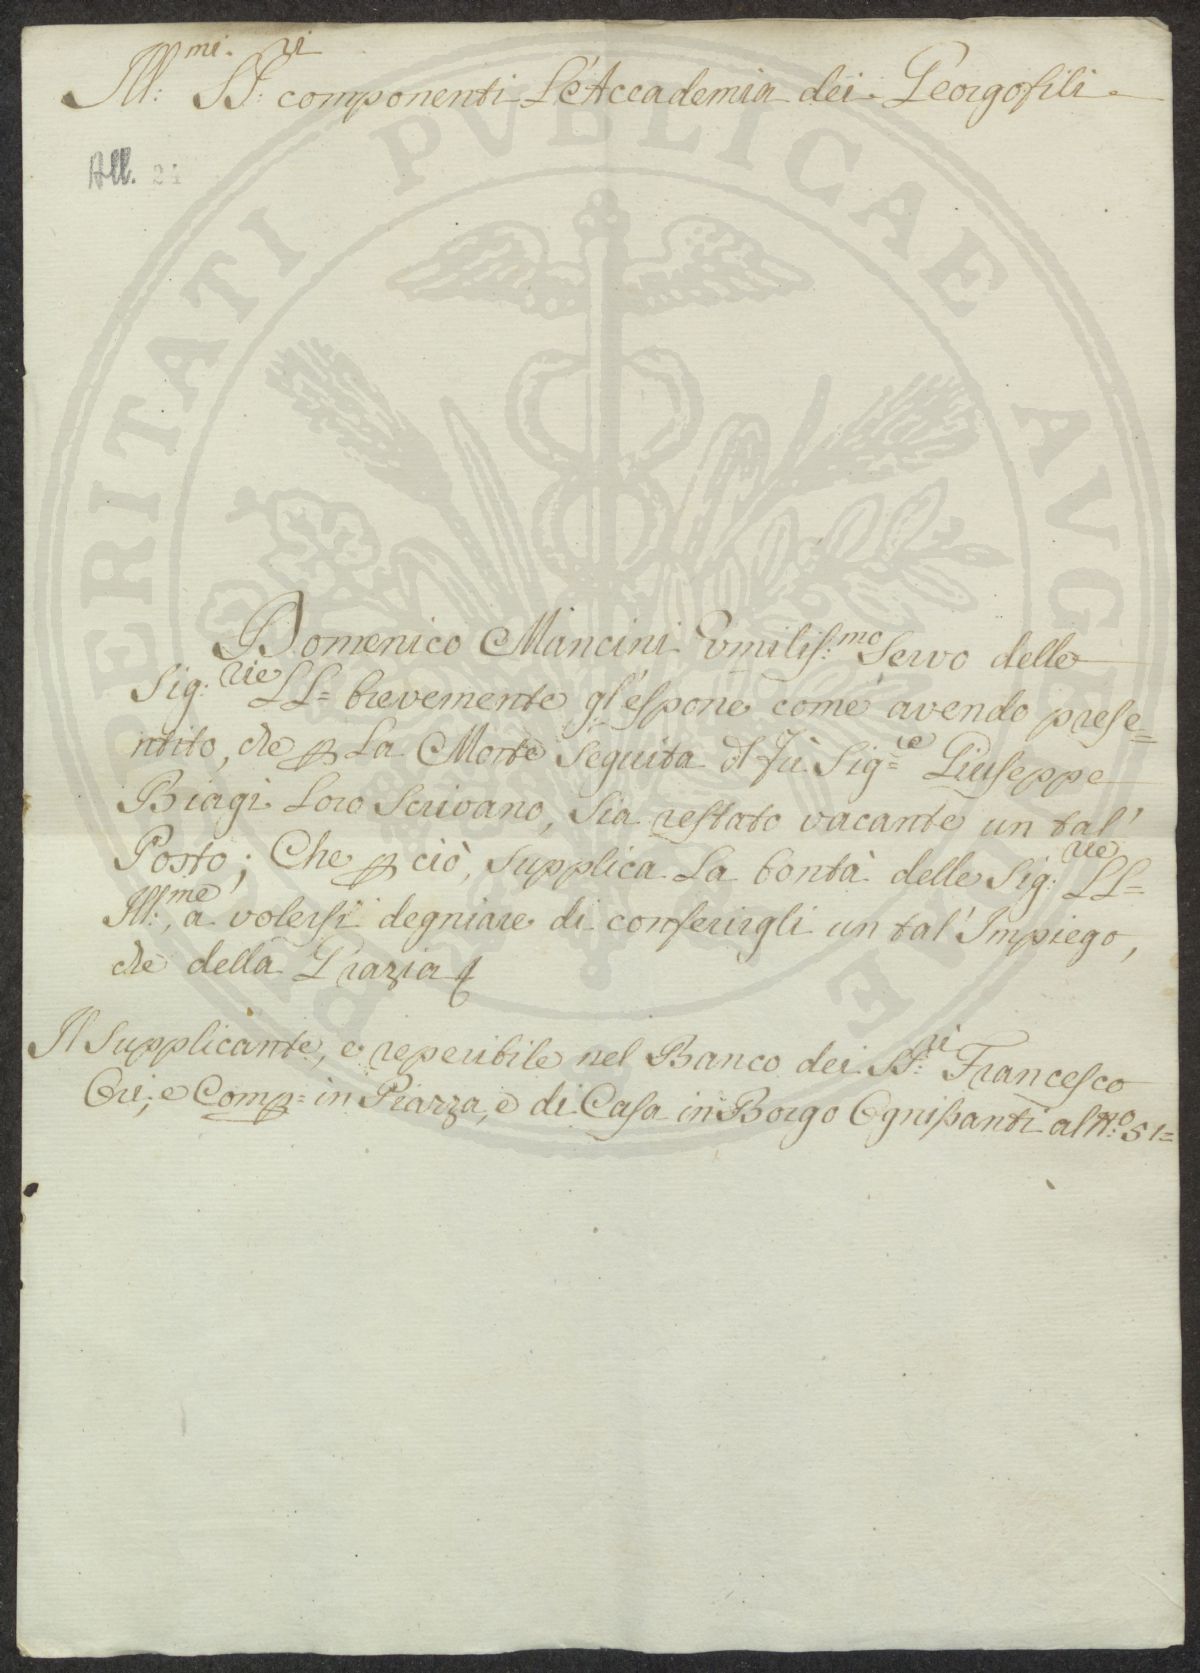 Ill:mi SS:ri componenti L'Accademia dei Georgofili
All. 24
PROSPERITATI PVBLICAE AVGENDAE
Domenico Mancini Vmilis:mo Servo delle
Sig:rie LL= brevemente gl'espone come avendo prese=
ntito, che p La Morte Seguita d Fù Sig=re Giuseppe
Biagi Loro Scrivano, Sia restato vacante un tal'
Posto; Che p ciò, supplica La bontà delle Sig:rie LL=
Ill:me, a volersi degniare di conferirgli un tal' Impiego,
che della Grazia
Il Supplicante, e reperibile nel Banco dei SS:ri Francesco
e Comp= in Piazza, e di Casa in Borgo Ognissanti al N:o 51=